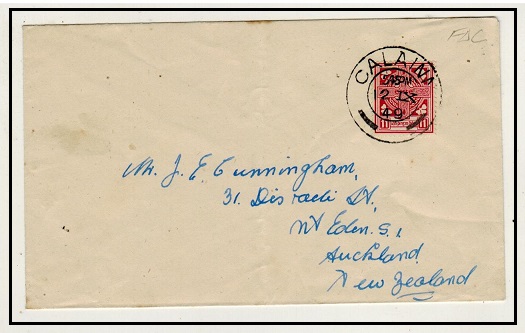 FDC
GALAIMH
2 IX
49
11
11
Mr. J. E. Cunningham,
31. Disraeli St,
Mt Eden. S.1,
Auckland
New Zealand